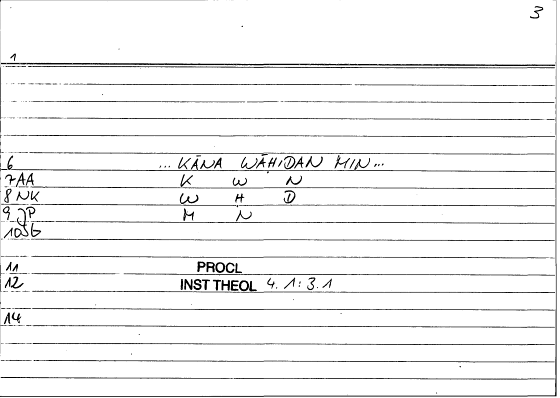 3
1
6 ... KĀNA WĀHIDAN MIN...
7AA K W N
8 NK W H D
9 JP M N
10 SG
11 PROCL
12 INST THEOL 4. 1: 3. 1
14